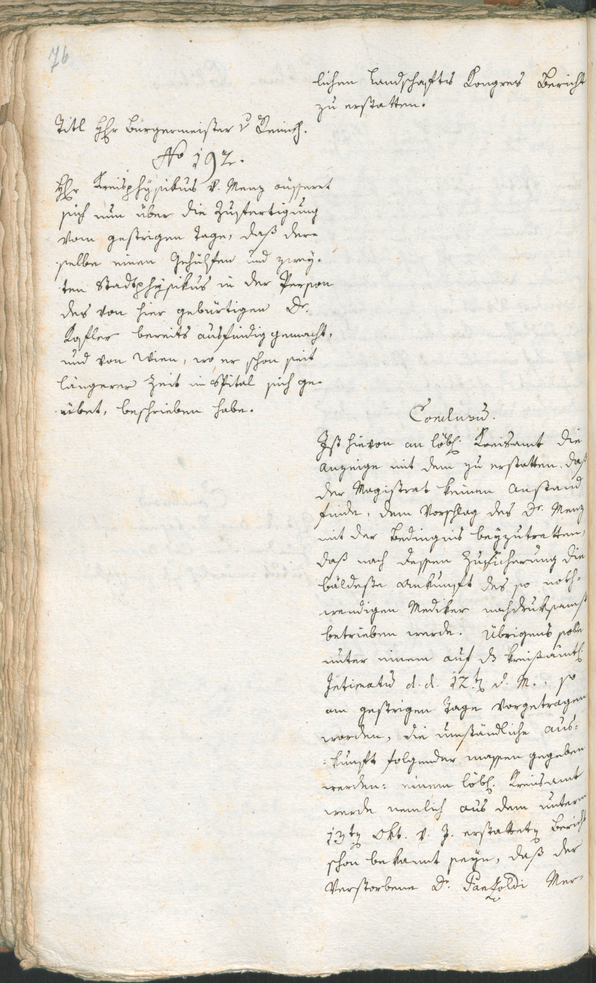 76
lichen Landschafts Kongres Bericht
zu erstatten.
Titl Hr Bürgermeister v Reinisch.
No 192.
Hr Kreisphÿsikus v. Menz äusseret
sich nun über die Zufertigung
vom gestrigen Tage, daß der=
selbe einen Gehülfen und zwey=
ten Stadtphÿsikus in der Person
des von hier gebürtigen Dr.
Kofler bereits ausfindig gemacht,
und von Wien, wo er schon seit
längerer Zeit im Spital sich ge=
übet, beschrieben habe.
Conclusum.
Ist hievon an löbl. Kreisamt die
Anzeige mit dem zu erstatten, daß
der Magistrat keinen Anstand
finde, dem Vorschlag des Dr. Menz
mit der Bedingnis beyzutretten,
daß nach dessen Zusicherung die
bäldeste Ankunft des so noth=
wendigen Mediker nachdruksamst
betrieben werde. Übrigens solle
unter einem auf ds kreisämtl.
Intimatum d. d. 12ten d. M. so
am gestrigen Tage vorgetragen
worden, die umständliche Aus=
kunft folgender massen gegeben
werden: einem löbl. Kreisamt
werde nemlich aus dem unterm
13ten Okt. v. J. erstatteten Bericht
schon bekannt seyn, daß der
Verstorbene D. Mer=